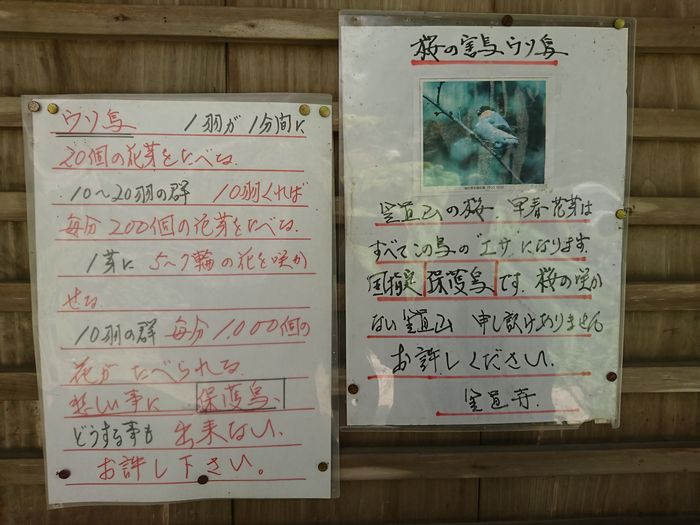 ウソ鳥 1羽が 1分間に
20個の花芽をたべる
10〜20羽の群 10羽くれば
毎分 200個の花芽をたべる
1芽に 5〜7輪の花を咲か
せる
10羽の群 毎分 1,000個の
花が たべられる
悲しい事に 保護鳥、
どうする事も 出来ない、
お許し下さい。
桜の害鳥ウソ鳥
宝登山の桜 早春花芽は
すべてこの鳥の"エサ"になります
国指定 保護鳥です 桜の咲か
ない宝登山 申し訳けありません
お許しください、
宝登寺